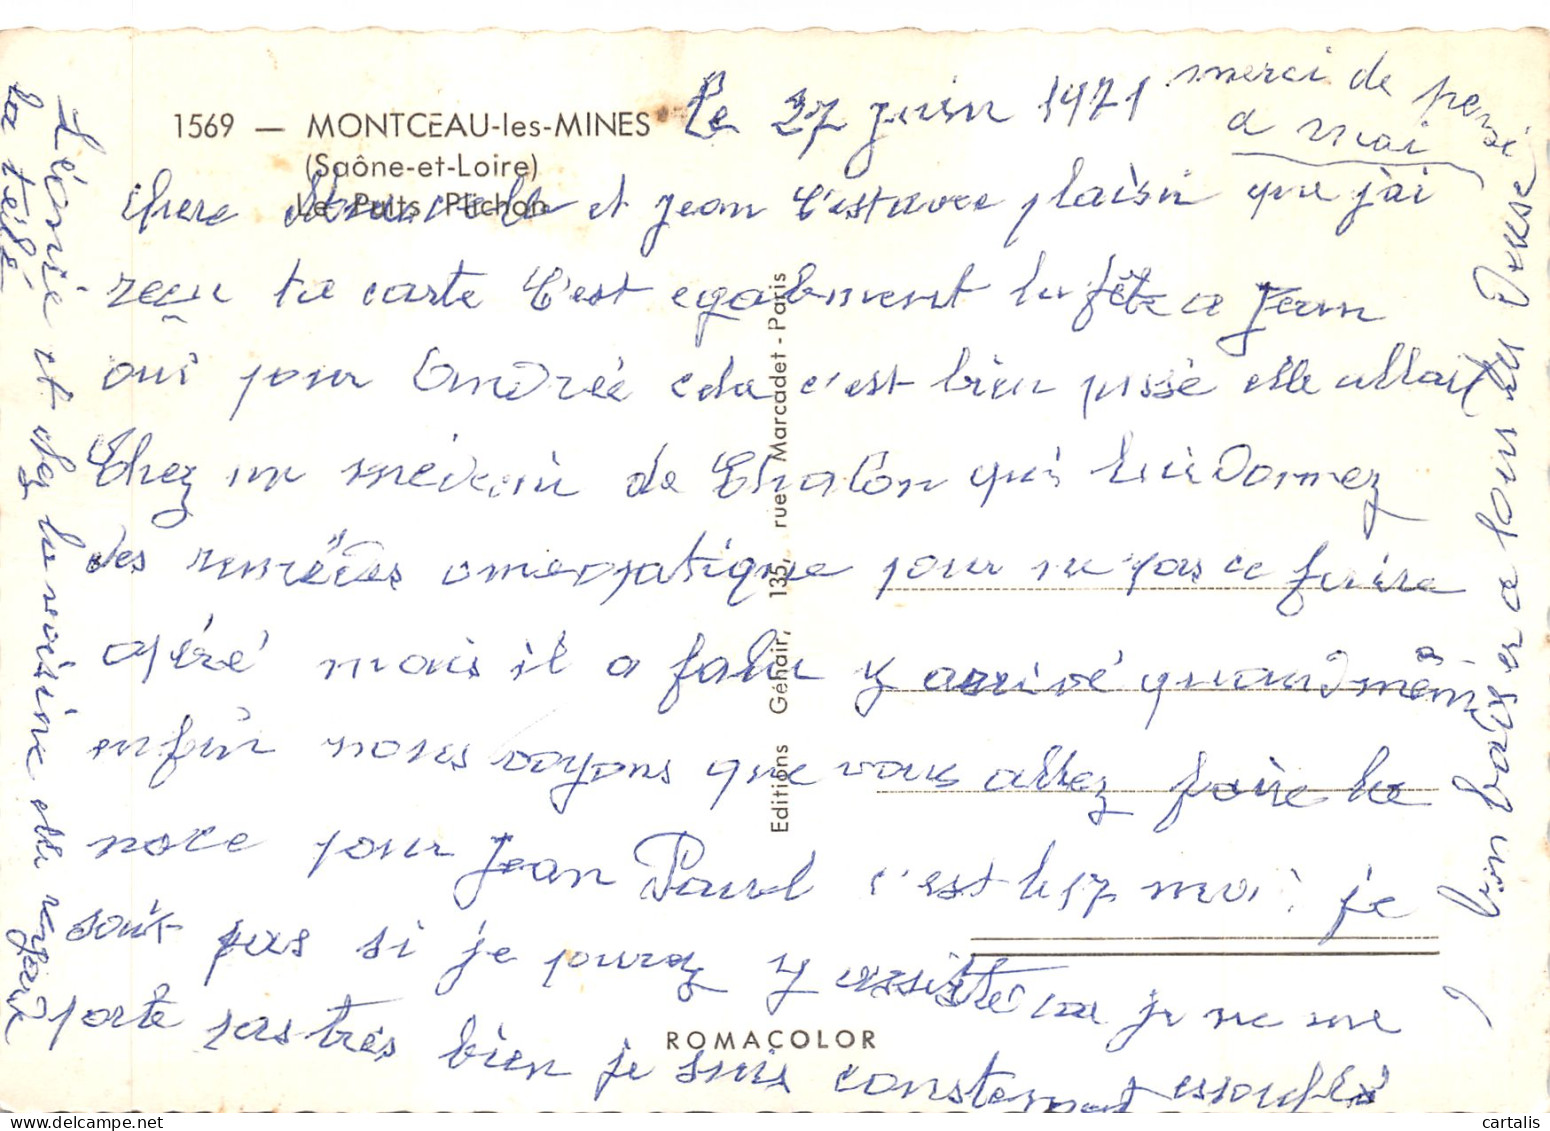 1569 — MONTCEAU-les-MINES
(Saône-et-Loire)
Le Puits Plichon
Le 27 juin 1971
merci de pensé
a moi
chere et jean C'est avec plaisir que j'ai
reçu ta carte C'est egalement la fête a Jean
oui pour Andrée cela c'est bien passé elle allait
Chez un médecin de Chalon qui lui donnez
des remèdes omeopatique pour ne pas ce faire
opéré mais il a falu y arrivé quand même
enfin nous voyons que vous allez faire la
noce pour Jean Paul c'est le 17 moi je
sait pas si je pourez y assisté car je ne me
porte pas très bien je suis constement essouflé
bon baiser a tous
Léonie et chez la voisine elle regarde
la télé
Editions Gehair, 135, rue Marcadet - Paris
ROMACOLOR
cartalis